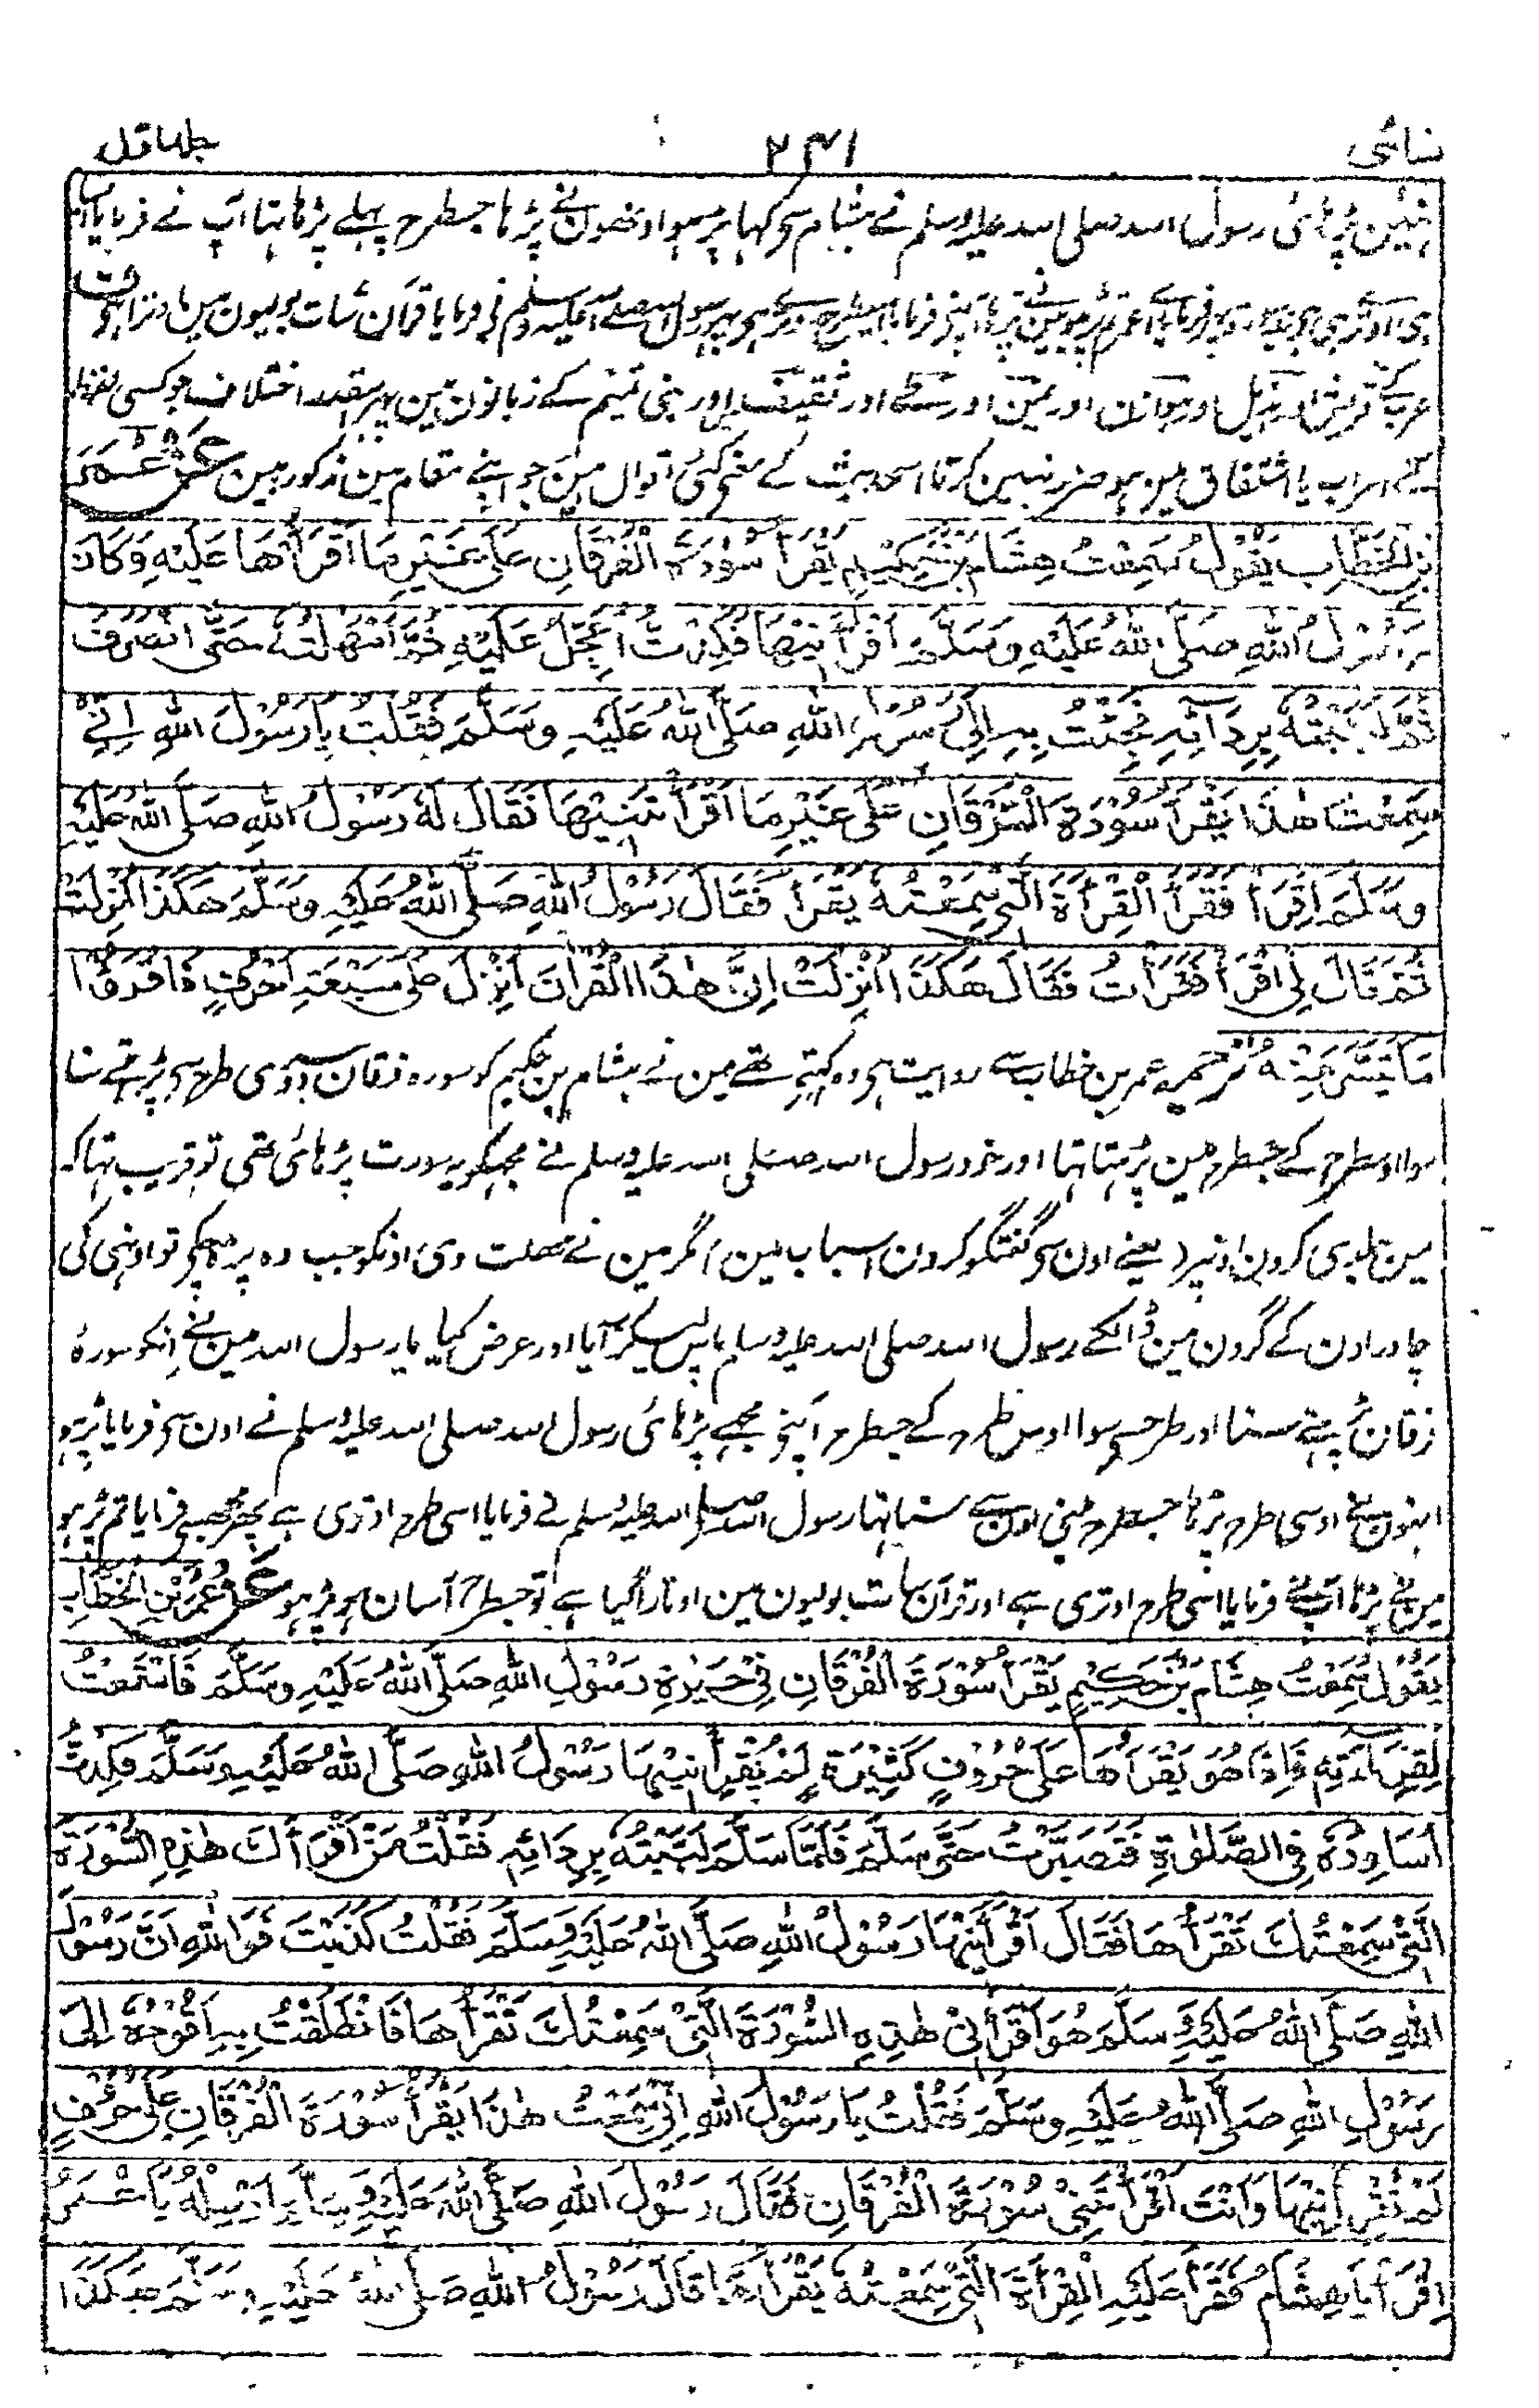 نسائی ۲۴۱ جلد اول
نہین پڑہائی رسول اسد صلی اسد علیہ وسلم نے ہشام سے کہا پڑہو اونھون نے پڑہا جسطرح پہلے پڑہا تہا آپ نے فرمایا
پہر رسول اسد صلے اسد علیہ وسلم نے فرمایا قرآن سات بولیون مین اوترا ہے ف
عرب کے قریش اور ہذیل اور ہوازن اور یمن اور طے اور ثقیف اور بنی تمیم کے زبانون مین پہر اسقدر اختلاف جو کسی لفظ
کے اعراب یا اشتقاق مین ہو ضرر نہین کرتا اس حدیث کے معنے کئی اقوال ہین جو اپنے مقام مین مذکور ہین عَنْ عُمَرَ
بْنِ الْخَطَّابِ يَقُوْلُ سَمِعْتُ هِشَامَ بْنَ حَكِيْمٍ يَقْرَأُ سُوْرَةَ الْفُرْقَانِ عَلٰى غَيْرِ مَا اَقْرَأُهَا عَلَيْهِ وَكَانَ
رَسُوْلُ اللّٰهِ صَلَّى اللّٰهُ عَلَيْهِ وَسَلَّمَ اَقْرَأَنِيْهَا فَكِدْتُ اَعْجَلُ عَلَيْهِ ثُمَّ اَمْهَلْتُهٗ حَتَّى انْصَرَفَ
ثُمَّ لَبَّبْتُهٗ بِرِدَآئِهٖ فَجِئْتُ بِهٖ اِلٰى رَسُوْلِ اللّٰهِ صَلَّى اللّٰهُ عَلَيْهِ وَسَلَّمَ فَقُلْتُ يَا رَسُوْلَ اللّٰهِ اِنِّيْ
سَمِعْتُ هٰذَا يَقْرَأُ سُوْرَةَ الْفُرْقَانِ عَلٰى غَيْرِ مَا اَقْرَأْتَنِيْهَا فَقَالَ لَهٗ رَسُوْلُ اللّٰهِ صَلَّى اللّٰهُ عَلَيْهِ
وَسَلَّمَ اِقْرَأْ فَقَرَأَ الْقِرْأَةَ الَّتِيْ سَمِعْتُهٗ يَقْرَأُ فَقَالَ رَسُوْلُ اللّٰهِ صَلَّى اللّٰهُ عَلَيْهِ وَسَلَّمَ هٰكَذَا اُنْزِلَتْ
ثُمَّ قَالَ لِي اقْرَأْ فَقَرَأْتُ فَقَالَ هٰكَذَا اُنْزِلَتْ اِنَّ هٰذَا الْقُرْاٰنَ اُنْزِلَ عَلٰى سَبْعَةِ اَحْرُفٍ فَاقْرَءُوْا
مَا تَيَسَّرَ مِنْهُ ترجمہ عمر بن خطاب سے روایت ہے وہ کہتے تھے مین نے ہشام بن حکیم کو سورہ فرقان اور طرح سے پڑہتے سنا
سوا اوسطرح کے جسطرح مین پڑہتا تہا اور خود رسول اسد صلی اسد علیہ وسلم نے مجہکو یہ سورت پڑہائی تھی تو قریب تہا کہ
مین جلدی کرون اونپر (یعنے اون سے گفتگو کرون اس باب مین) مگر مین نے مہلت دی اونکو جب وہ پڑہ چکے تو اونہی کی
چادر اون کے گردن مین ڈالکے رسول اسد صلی اسد علیہ وسلم پاس لیکر آیا اور عرض کیا یا رسول اسد مین نے انکو سورۂ
فرقان پڑہتے سنا اور طرح سے سوا اوس طرح کے جسطرح آپنے مجھے پڑہائی رسول اسد صلی اسد علیہ وسلم نے اون سے فرمایا پڑہو
انہون نے اوسی طرح پڑہا جسطرح مینے اون سے سنا تہا رسول اسد صلے اسد علیہ وسلم نے فرمایا اسی طرح اوتری ہے پھر مجھسے فرمایا تم پڑہو
مین نے پڑہا آپ نے فرمایا اسی طرح اوتری ہے اور قرآن سات بولیون مین اوتارا گیا ہے تو جسطرح آسان ہو پڑہو عَنْ عُمَرَ بْنِ الْخَطَّابِ
يَقُوْلُ سَمِعْتُ هِشَامَ بْنَ حَكِيْمٍ يَقْرَأُ سُوْرَةَ الْفُرْقَانِ فِيْ حَيٰوةِ رَسُوْلِ اللّٰهِ صَلَّى اللّٰهُ عَلَيْهِ وَسَلَّمَ فَاسْتَمَعْتُ
لِقِرَآءَتِهٖ فَاِذَا هُوَ يَقْرَأُهَا عَلٰى حُرُوْفٍ كَثِيْرَةٍ لَمْ يُقْرِأْنِيْهَا رَسُوْلُ اللّٰهِ صَلَّى اللّٰهُ عَلَيْهِ وَسَلَّمَ فَكِدْتُّ
اُسَاوِرُهٗ فِي الصَّلٰوةِ فَتَصَبَّرْتُ حَتّٰى سَلَّمَ فَلَمَّا سَلَّمَ لَبَّبْتُهٗ بِرِدَائِهٖ فَقُلْتُ مَنْ اَقْرَأَكَ هٰذِهِ السُّوْرَةَ
الَّتِيْ سَمِعْتُكَ تَقْرَأُهَا فَقَالَ اَقْرَأَنِيْهَا رَسُوْلُ اللّٰهِ صَلَّى اللّٰهُ عَلَيْهِ وَسَلَّمَ فَقُلْتُ كَذَبْتَ فَوَاللّٰهِ اِنَّ رَسُوْلَ
اللّٰهِ صَلَّى اللّٰهُ عَلَيْهِ وَسَلَّمَ هُوَ اَقْرَأَنِيْ هٰذِهِ السُّوْرَةَ الَّتِيْ سَمِعْتُكَ تَقْرَأُهَا فَانْطَلَقْتُ بِهٖ اَقُوْدُهٗ اِلٰى
رَسُوْلِ اللّٰهِ صَلَّى اللّٰهُ عَلَيْهِ وَسَلَّمَ فَقُلْتُ يَا رَسُوْلَ اللّٰهِ اِنِّيْ سَمِعْتُ هٰذَا يَقْرَأُ سُوْرَةَ الْفُرْقَانِ عَلٰى حُرُوْفٍ
لَمْ تُقْرِأْنِيْهَا وَاَنْتَ اَقْرَأْتَنِيْ سُوْرَةَ الْفُرْقَانِ فَقَالَ رَسُوْلُ اللّٰهِ صَلَّى اللّٰهُ عَلَيْهِ وَسَلَّمَ اَرْسِلْهُ يَا عُمَرُ
اِقْرَأْ يَا هِشَامُ فَقَرَأَ عَلَيْهِ الْقِرْأَةَ الَّتِيْ سَمِعْتُهٗ يَقْرَأُهَا قَالَ رَسُوْلُ اللّٰهِ صَلَّى اللّٰهُ عَلَيْهِ وَسَلَّمَ هٰكَذَا